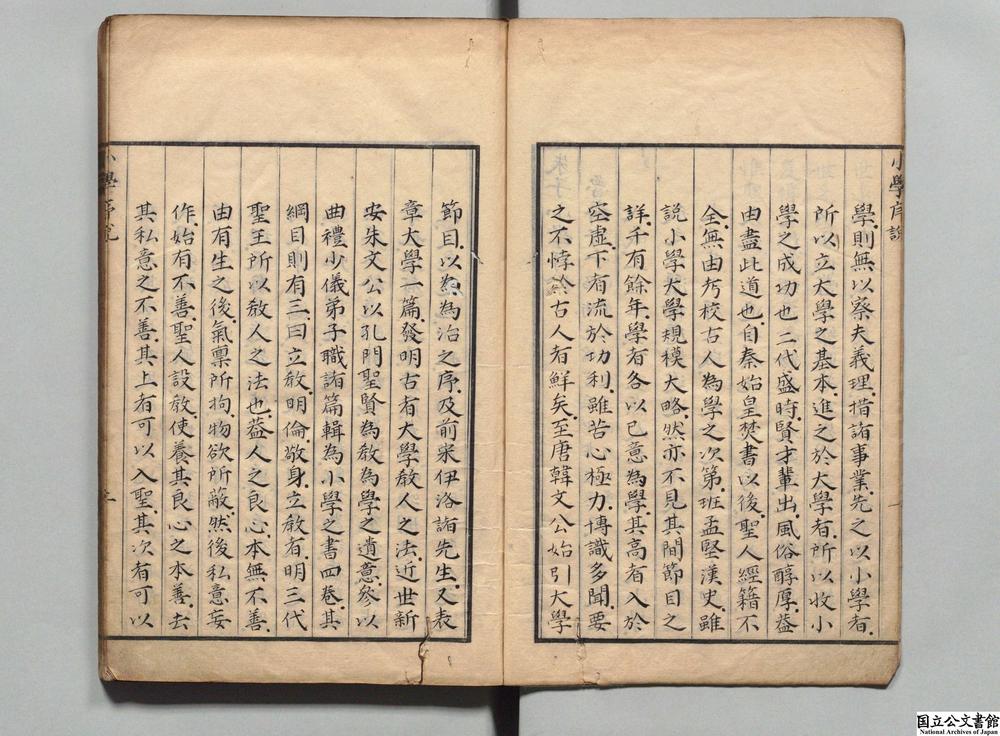 小學序說
學則無以察夫義理措諸事業先之以小學者
所以立大學之基本進之於大學者所以收小
學之成功也二代盛時賢才輩出風俗醇厚葢
由盡此道也自秦始皇焚書以後聖人經籍不
全無由考校古人為學之次第班孟堅漢史雖
說小學大學規模大略然亦不見其間節目之
詳千有餘年學者各以己意為學其高者入於
空虛下者流於功利雖苦心極力博識多聞要
之不悖於古人者鮮矣至唐韓文公始引大學
節目以為為治之序及前宋伊洛諸先生又表
章大學一篇發明古者大學教人之法近世新
安朱文公以孔門聖賢為教為學之遺意參以
曲禮少儀弟子職諸篇輯為小學之書四卷其
綱目則有三曰立教明倫敬身立教者明三代
聖王所以教人之法也葢人之良心本無不善
由有生之後氣禀所拘物欲所蔽然後私意妄
作始有不善聖人設教使養其良心之本善去
其私意之不善其上者可以入聖其次者可以
小學序說
国立公文書館
National Archives of Japan